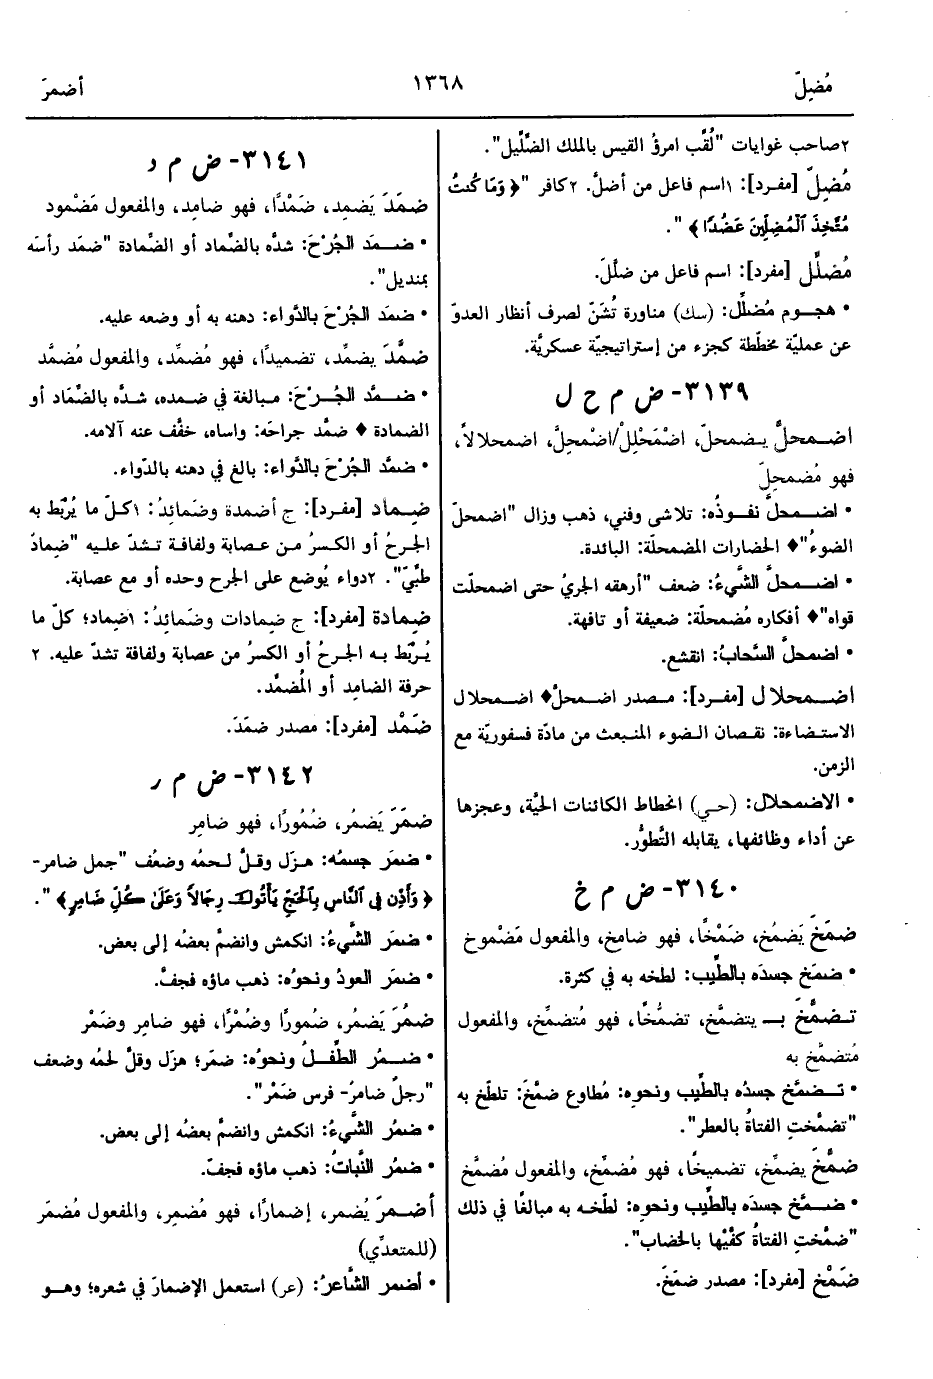 مُضِلّ
١٣٦٨
أضمرَ
٢صاحب غوايات "لُقِّب امرؤُ القيس بالملك الضِّلِّيل".
مُضِلّ [مفرد]: ١اسم فاعل من أضلَّ. ٢كافر "﴿وَمَا كُنتُ
مُتَّخِذَ ٱلْمُضِلِّينَ عَضُدًا﴾".
مُضلِّل [مفرد]: اسم فاعل من ضلَّلَ.
• هجـوم مُضلِّل: (سك) مناورة تُشَنّ لصرف أنظار العدوّ
عن عمليّة مخطّطة كجزء من إستراتيجيّة عسكريَّة.
٣١٣٩- ض م ح ل
اضـمحلَّ يـضمحلّ، اضْمَحْلِلْ/اضْمحِلَّ، اضمحلالاً،
فهو مُضمحِلّ
• اضـمحلَّ نفـوذُه: تلاشى وفني، ذهب وزال "اضمحلّ
الضوءُ"♦ الحضارات المضمحلّة: البائدة.
• اضـمحلَّ الشَّيءُ: ضعف "أرهقه الجريُ حتى اضمحلّت
قواه"♦ أفكاره مُضمحلّة: ضعيفة أو تافهة.
• اضمحلَّ السَّحابُ: انقشع.
اضـمحلال [مفـرد]: مـصدر اضـمحلَّ♦ اضـمحلال
الاستـضاءة: نقـصان الـضوء المنـبعث من مادّة فسفوريّة مع
الزمن.
• الاضمحلال: (حـي) انحطاط الكائنات الحيَّة، وعجزها
عن أداء وظائفها، يقابله التَّطوُّر.
٣١٤٠- ض م خ
ضمَخَ يَضمُخ، ضَمْخًا، فهو ضامِخ، والمفعول مَضْموخ
• ضمَخ جسدَه بالطِّيب: لطخه به في كثرة.
تـضمَّخَ بـ يتضمَّخ، تضمُّخًا، فهو مُتضمِّخ، والمفعول
مُتضمَّخ به
• تـضمَّخ جسدُه بالطِّيب ونحوه: مُطاوع ضمَّخَ: تلطّخ به
"تضمّختِ الفتاةُ بالعطر".
ضمَّخَ يضمِّخ، تضميخًا، فهو مُضمِّخ، والمفعول مُضمَّخ
• ضـمَّخ جسدَه بالطِّيب ونحوِه: لطّخـه به مبالغًا في ذلك
"ضمّختِ الفتاةُ كفَّيْها بالخضاب".
ضَمْخ [مفرد]: مصدر ضمَخَ.
٣١٤١- ض م د
ضمَدَ يَضمِد، ضَمْدًا، فهو ضامِد، والمفعول مَضْمود
• ضـمَد الجُرْحَ: شدَّه بالضِّماد أو الضِّمادة "ضمَد رأسَه
بمنديل".
• ضمَد الجُرْحَ بالدَّواء: دهنه به أو وضعه عليه.
ضمَّدَ يضمِّد، تضميدًا، فهو مُضمِّد، والمفعول مُضمَّد
• ضـمَّد الجُـرْحَ: مـبالغة في ضـمده، شـدَّه بالضِّماد أو
الضمادة ♦ ضمَّد جراحَه: واساه، خفَّف عنه آلامه.
• ضمَّد الجُرْحَ بالدَّواء: بالغ في دهنه بالدّواء.
ضِـماد [مفـرد]: ج أضمدة وضَمائِدُ: ١كـلّ ما يُربّط به
الجرحُ أو الكسرُ مـن عـصابة ولفافـة تـشدّ علـيه "ضِمادٌ
طبِّيّ". ٢دواء يُوضع على الجرح وحده أو مع عصابة.
ضِمادة [مفرد]: ج ضِمادات وضَمائِدُ: ١ضماد؛ كلّ ما
يُربّط بـه الجرحُ أو الكسرُ من عصابة ولفافة تشدّ عليه. ٢
حرفة الضامِد أو المُضمِّد.
ضَمْد [مفرد]: مصدر ضمَدَ.
٣١٤٢- ض م ر
ضمَرَ يَضمُر، ضُمُورًا، فهو ضامِر
• ضمَر جسمُه: هـزَل وقـلَّ لـحمُه وضعُف "جمل ضامر-
﴿وَأَذِّن فِى ٱلنَّاسِ بِٱلْحَجِّ يَأْتُوكَ رِجَالاً وَعَلَىٰ كُلِّ ضَامِرٍ﴾".
• ضمَر الشَّيءُ: انكمش وانضمَّ بعضُه إلى بعض.
• ضمَر العودُ ونحوُه: ذهب ماؤه فجفَّ.
ضمُرَ يَضمُر، ضُمورًا وضُمْرًا، فهو ضامِر وضَمْر
• ضـمُر الطِّفـلُ ونحوُه: ضمَر؛ هزَل وقلَّ لحمُه وضعف
"رجلٌ ضامرٌ- فرس ضَمْر".
• ضمُر الشَّيءُ: انكمش وانضمَّ بعضُه إلى بعض.
• ضمُر النَّباتُ: ذهب ماؤه فجفّ.
أضـمرَ يُضمر، إضمارًا، فهو مُضمِر، والمفعول مُضمَر
(للمتعدِّي)
• أضمر الشَّاعرُ: (عر) استعمل الإضمارَ في شعره؛ وهـو